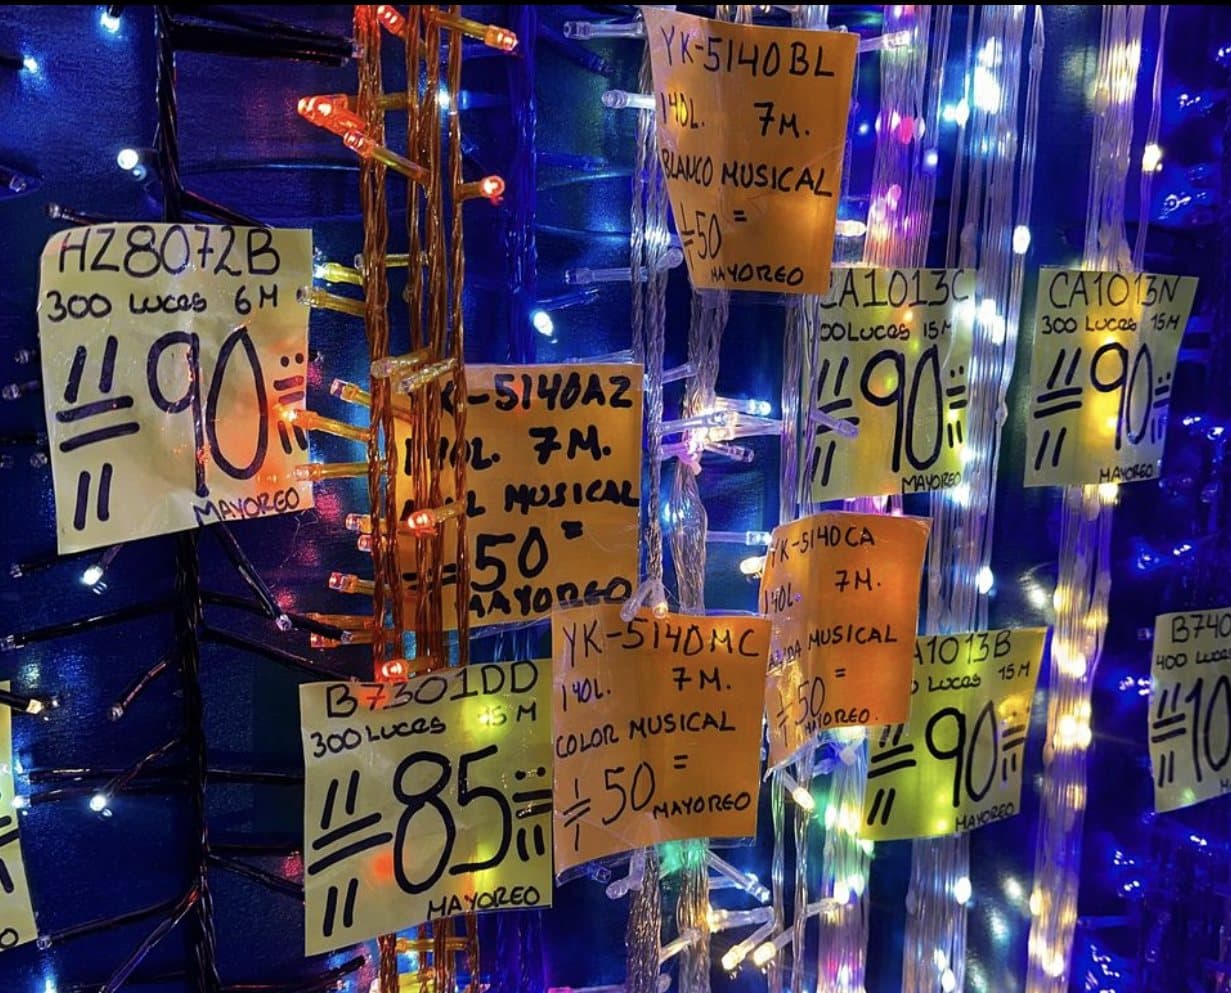 YK-5140BL
140L. 7M.
BLANCO MUSICAL
50=
MAYOREO
HZ8072B
300 Luces 6M
90
MAYOREO
CA1013C
300 Luces 15M
90
MAYOREO
CA1013N
300 Luces 15M
90
MAYOREO
YK-5140AZ
140L. 7M.
MUSICAL
50=
MAYOREO
YK-5140CA
140L. 7M.
MUSICAL
50=
MAYOREO.
YK-5140MC
140L. 7M.
COLOR MUSICAL
50=
MAYOREO
A1013B
Luces 15M
90
MAYOREO
B7301DD
300 Luces 15M
85
MAYOREO
B740
400 Luces
10